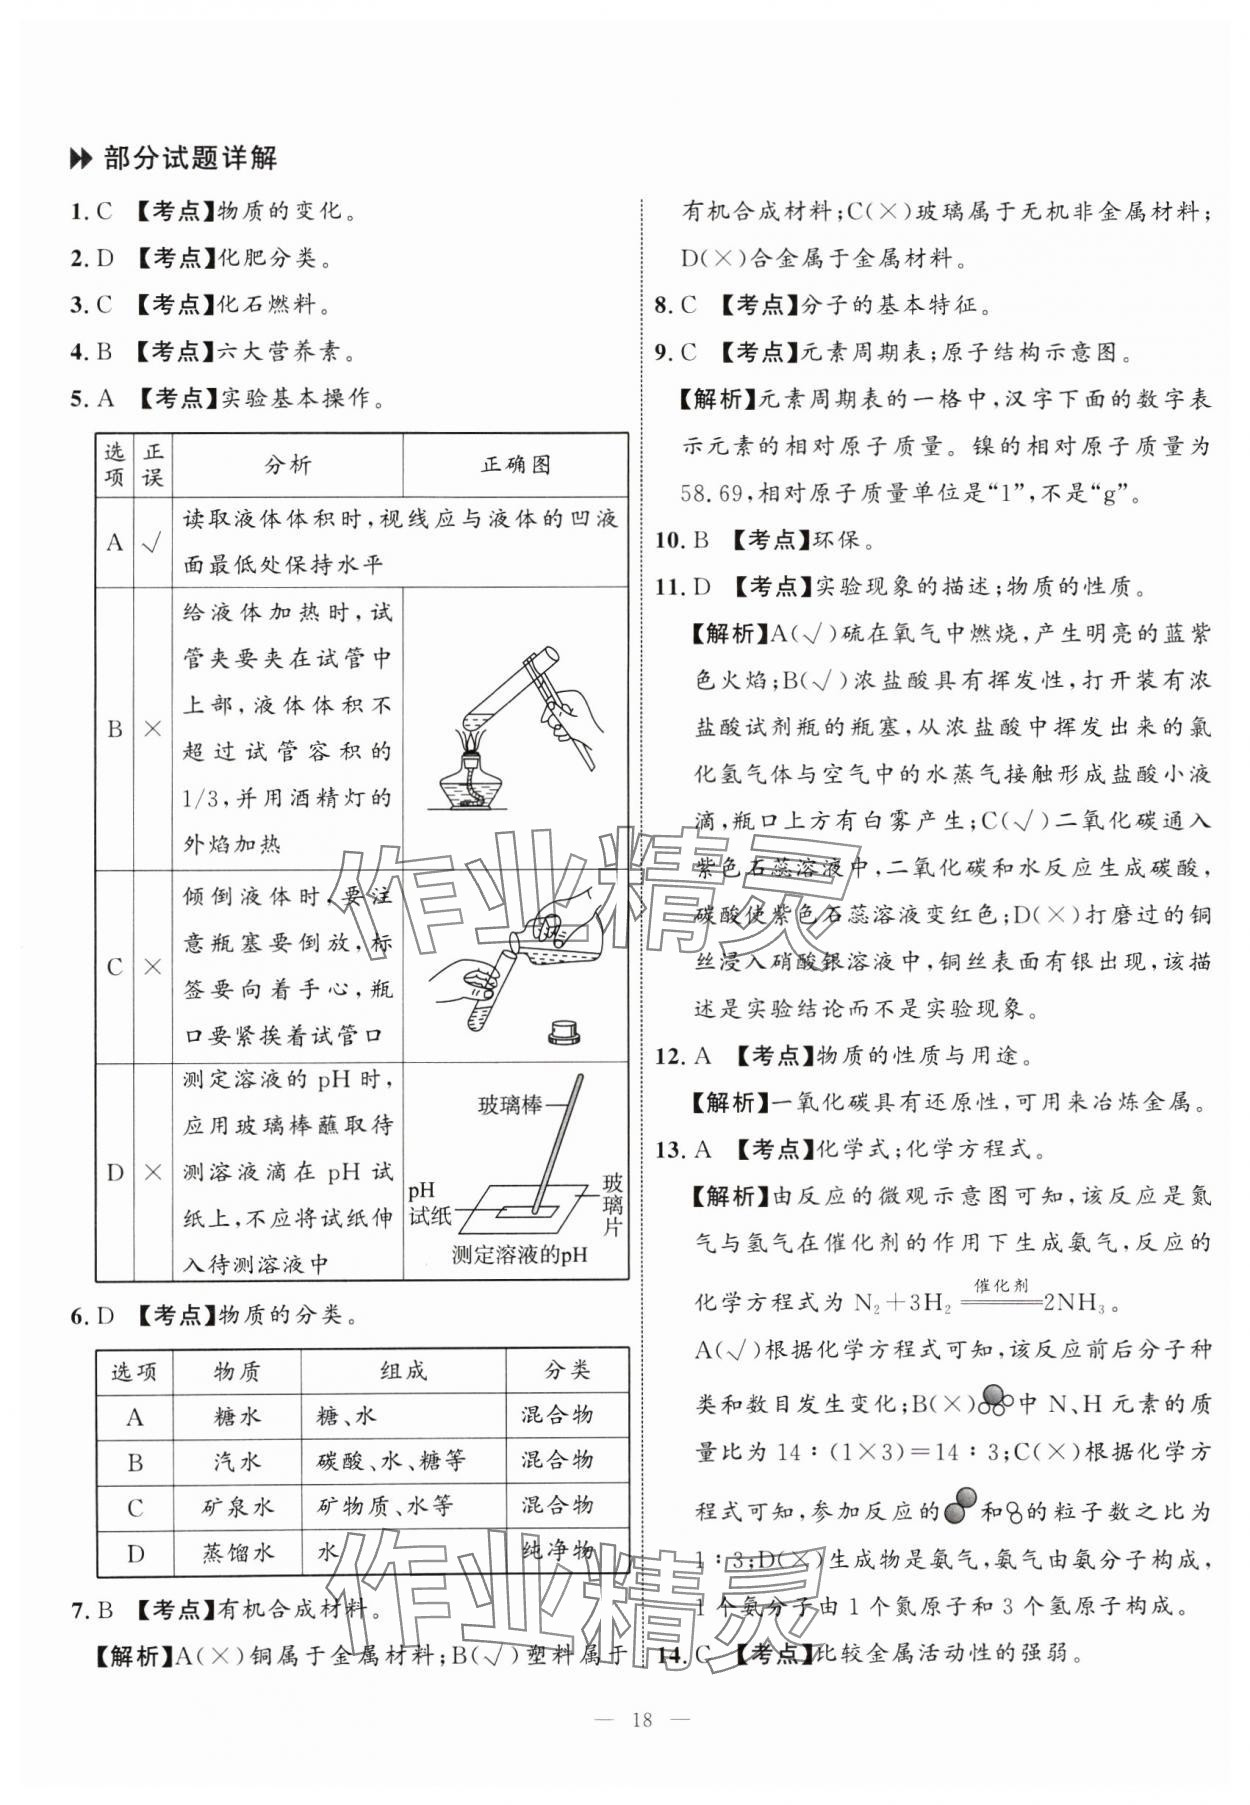 部分试题详解
1. C 【考点】物质的变化。
2. D 【考点】化肥分类。
3. C 【考点】化石燃料。
4. B 【考点】六大营养素。
5. A 【考点】实验基本操作。
选项 正误 分析 正确图
A √ 读取液体体积时,视线应与液体的凹液
面最低处保持水平
B × 给液体加热时,试
管夹要夹在试管中
上部,液体体积不
超过试管容积的
1/3,并用酒精灯的
外焰加热
C × 倾倒液体时,要注
意瓶塞要倒放,标
签要向着手心,瓶
口要紧挨着试管口
D × 测定溶液的 pH 时,
应用玻璃棒蘸取待
测溶液滴在 pH 试
纸上,不应将试纸伸
入待测溶液中
玻璃棒
pH
试纸
玻璃片
测定溶液的pH
6. D 【考点】物质的分类。
选项 物质 组成 分类
A 糖水 糖、水 混合物
B 汽水 碳酸、水、糖等 混合物
C 矿泉水 矿物质、水等 混合物
D 蒸馏水 水 纯净物
7. B 【考点】有机合成材料。
【解析】A(×)铜属于金属材料;B(√)塑料属于
有机合成材料;C(×)玻璃属于无机非金属材料;
D(×)合金属于金属材料。
8. C 【考点】分子的基本特征。
9. C 【考点】元素周期表;原子结构示意图。
【解析】元素周期表的一格中,汉字下面的数字表
示元素的相对原子质量。镍的相对原子质量为
58.69,相对原子质量单位是“1”,不是“g”。
10. B 【考点】环保。
11. D 【考点】实验现象的描述;物质的性质。
【解析】A(√)硫在氧气中燃烧,产生明亮的蓝紫
色火焰;B(√)浓盐酸具有挥发性,打开装有浓
盐酸试剂瓶的瓶塞,从浓盐酸中挥发出来的氯
化氢气体与空气中的水蒸气接触形成盐酸小液
滴,瓶口上方有白雾产生;C(√)二氧化碳通入
紫色石蕊溶液中,二氧化碳和水反应生成碳酸,
碳酸使紫色石蕊溶液变红色;D(×)打磨过的铜
丝浸入硝酸银溶液中,铜丝表面有银出现,该描
述是实验结论而不是实验现象。
12. A 【考点】物质的性质与用途。
【解析】一氧化碳具有还原性,可用来冶炼金属。
13. A 【考点】化学式;化学方程式。
【解析】由反应的微观示意图可知,该反应是氮
气与氢气在催化剂的作用下生成氨气,反应的
化学方程式为 N₂+3H₂ 催化剂 2NH₃。
A(√)根据化学方程式可知,该反应前后分子种
类和数目发生变化;B(×)中 N、H 元素的质
量比为 14∶(1×3)=14∶3;C(×)根据化学方
程式可知,参加反应的和的粒子数之比为
1∶3;D(×)生成物是氨气,氨气由氨分子构成,
1 个氨分子由 1 个氮原子和 3 个氢原子构成。
14. C 【考点】比较金属活动性的强弱。
— 18 —
作业精灵
作业精灵